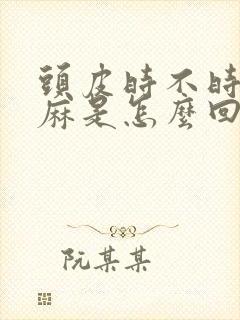 頭皮時不時
麻是怎麼回
阮某某